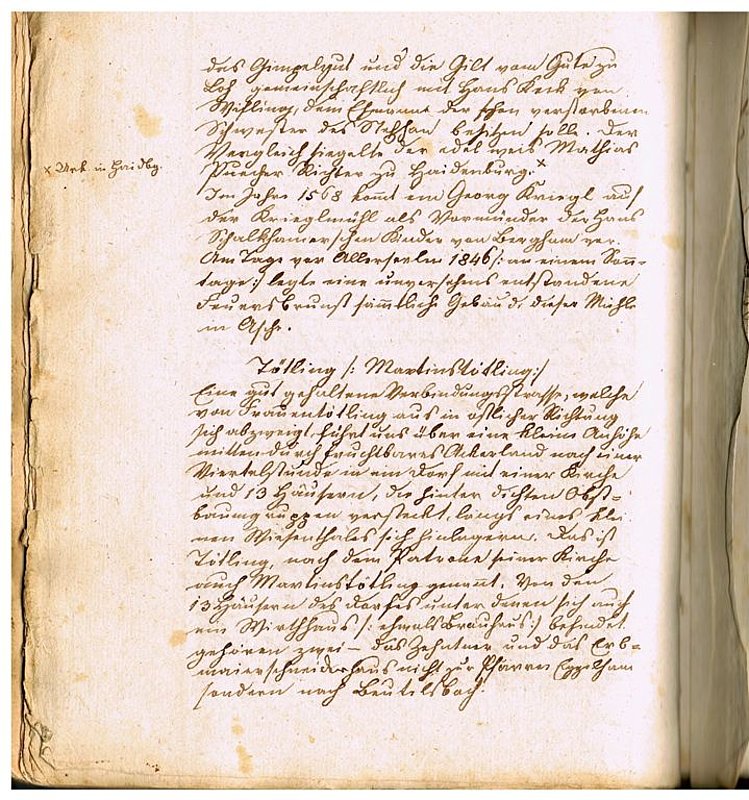 das Gimpelgut und die Gilt vom Gute zu
Loh gemeinschaftlich mit Hans Keck von
Wifling, dem Ehemann der schon verstorbenen
Schwester des Stephan besitzen solle. Der
Vergleich siegelte der edel weis Mathias
x Urk. in Haidbg.
Puecher Richter zu Haidenburg. x
Im Jahre 1568 kommt ein Georg Kriegl auf
der Krieglmühl als Vormünder der Hans
Schalkhamerschen Kinder von Bergham vor.
Am Tage vor Allerseelen 1846 /: an einem Sonn=
tage :/ legte eine unversehens entstandene
Feuersbrunst sämmtliche Gebäude dieser Mühle
in Asche.
Tötling /: Martinstötling :/
Eine gut gehaltene Verbindungsstrasse, welche
von Frauentötling aus in östlicher Richtung
sich abzweigt, führt uns über eine kleine Anhöhe
mitten durch fruchtbares Ackerland nach einer
Viertelstunde in ein Dorf mit einer Kirche
und 13 Häusern, die hinter dichten Obst=
baumgruppen versteckt, längs eines klei=
nen Wiesenthales sich hinlagern. Das ist
Tötling, nach dem Patrone seiner Kirche
auch Martinstötling genannt. Von den
13 Häusern des Dorfes unter denen sich auch
ein Wirthhaus /: ehmals Brauhaus :/ befindet
gehören zwei – das Zehntner und das Erb=
maierschneiderhaus nicht zur Pfarrei Egglham
sondern nach Beutelsbach.